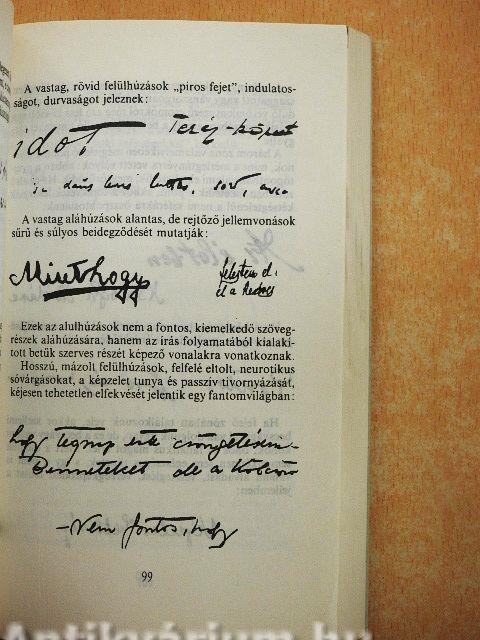 A vastag, rövid felülhúzások „piros fejet”, indulatos-
ságot, durvaságot jeleznek:
idot
Teréz-körut
A vastag aláhúzások alantas, de rejtőző jellemvonások
sűrű és súlyos beidegződését mutatják:
Minthogy
felejtem el.
el a kedves
Ezek az alulhúzások nem a fontos, kiemelkedő szöveg-
részek aláhúzására, hanem az írás folyamatából kialakí-
tott betűk szerves részét képező vonalakra vonatkoznak.
Hosszú, mázolt felülhúzások, felfelé eltolt, neurotikus
sóvárgásokat, a képzelet tunya és passzív tivornyázását,
kéjesen tehetetlen elfekvését jelentik egy fantomvilágban:
hogy tegnap este
Benneteket de a
–Nem fontos, hogy
99
Antikvárium.hu